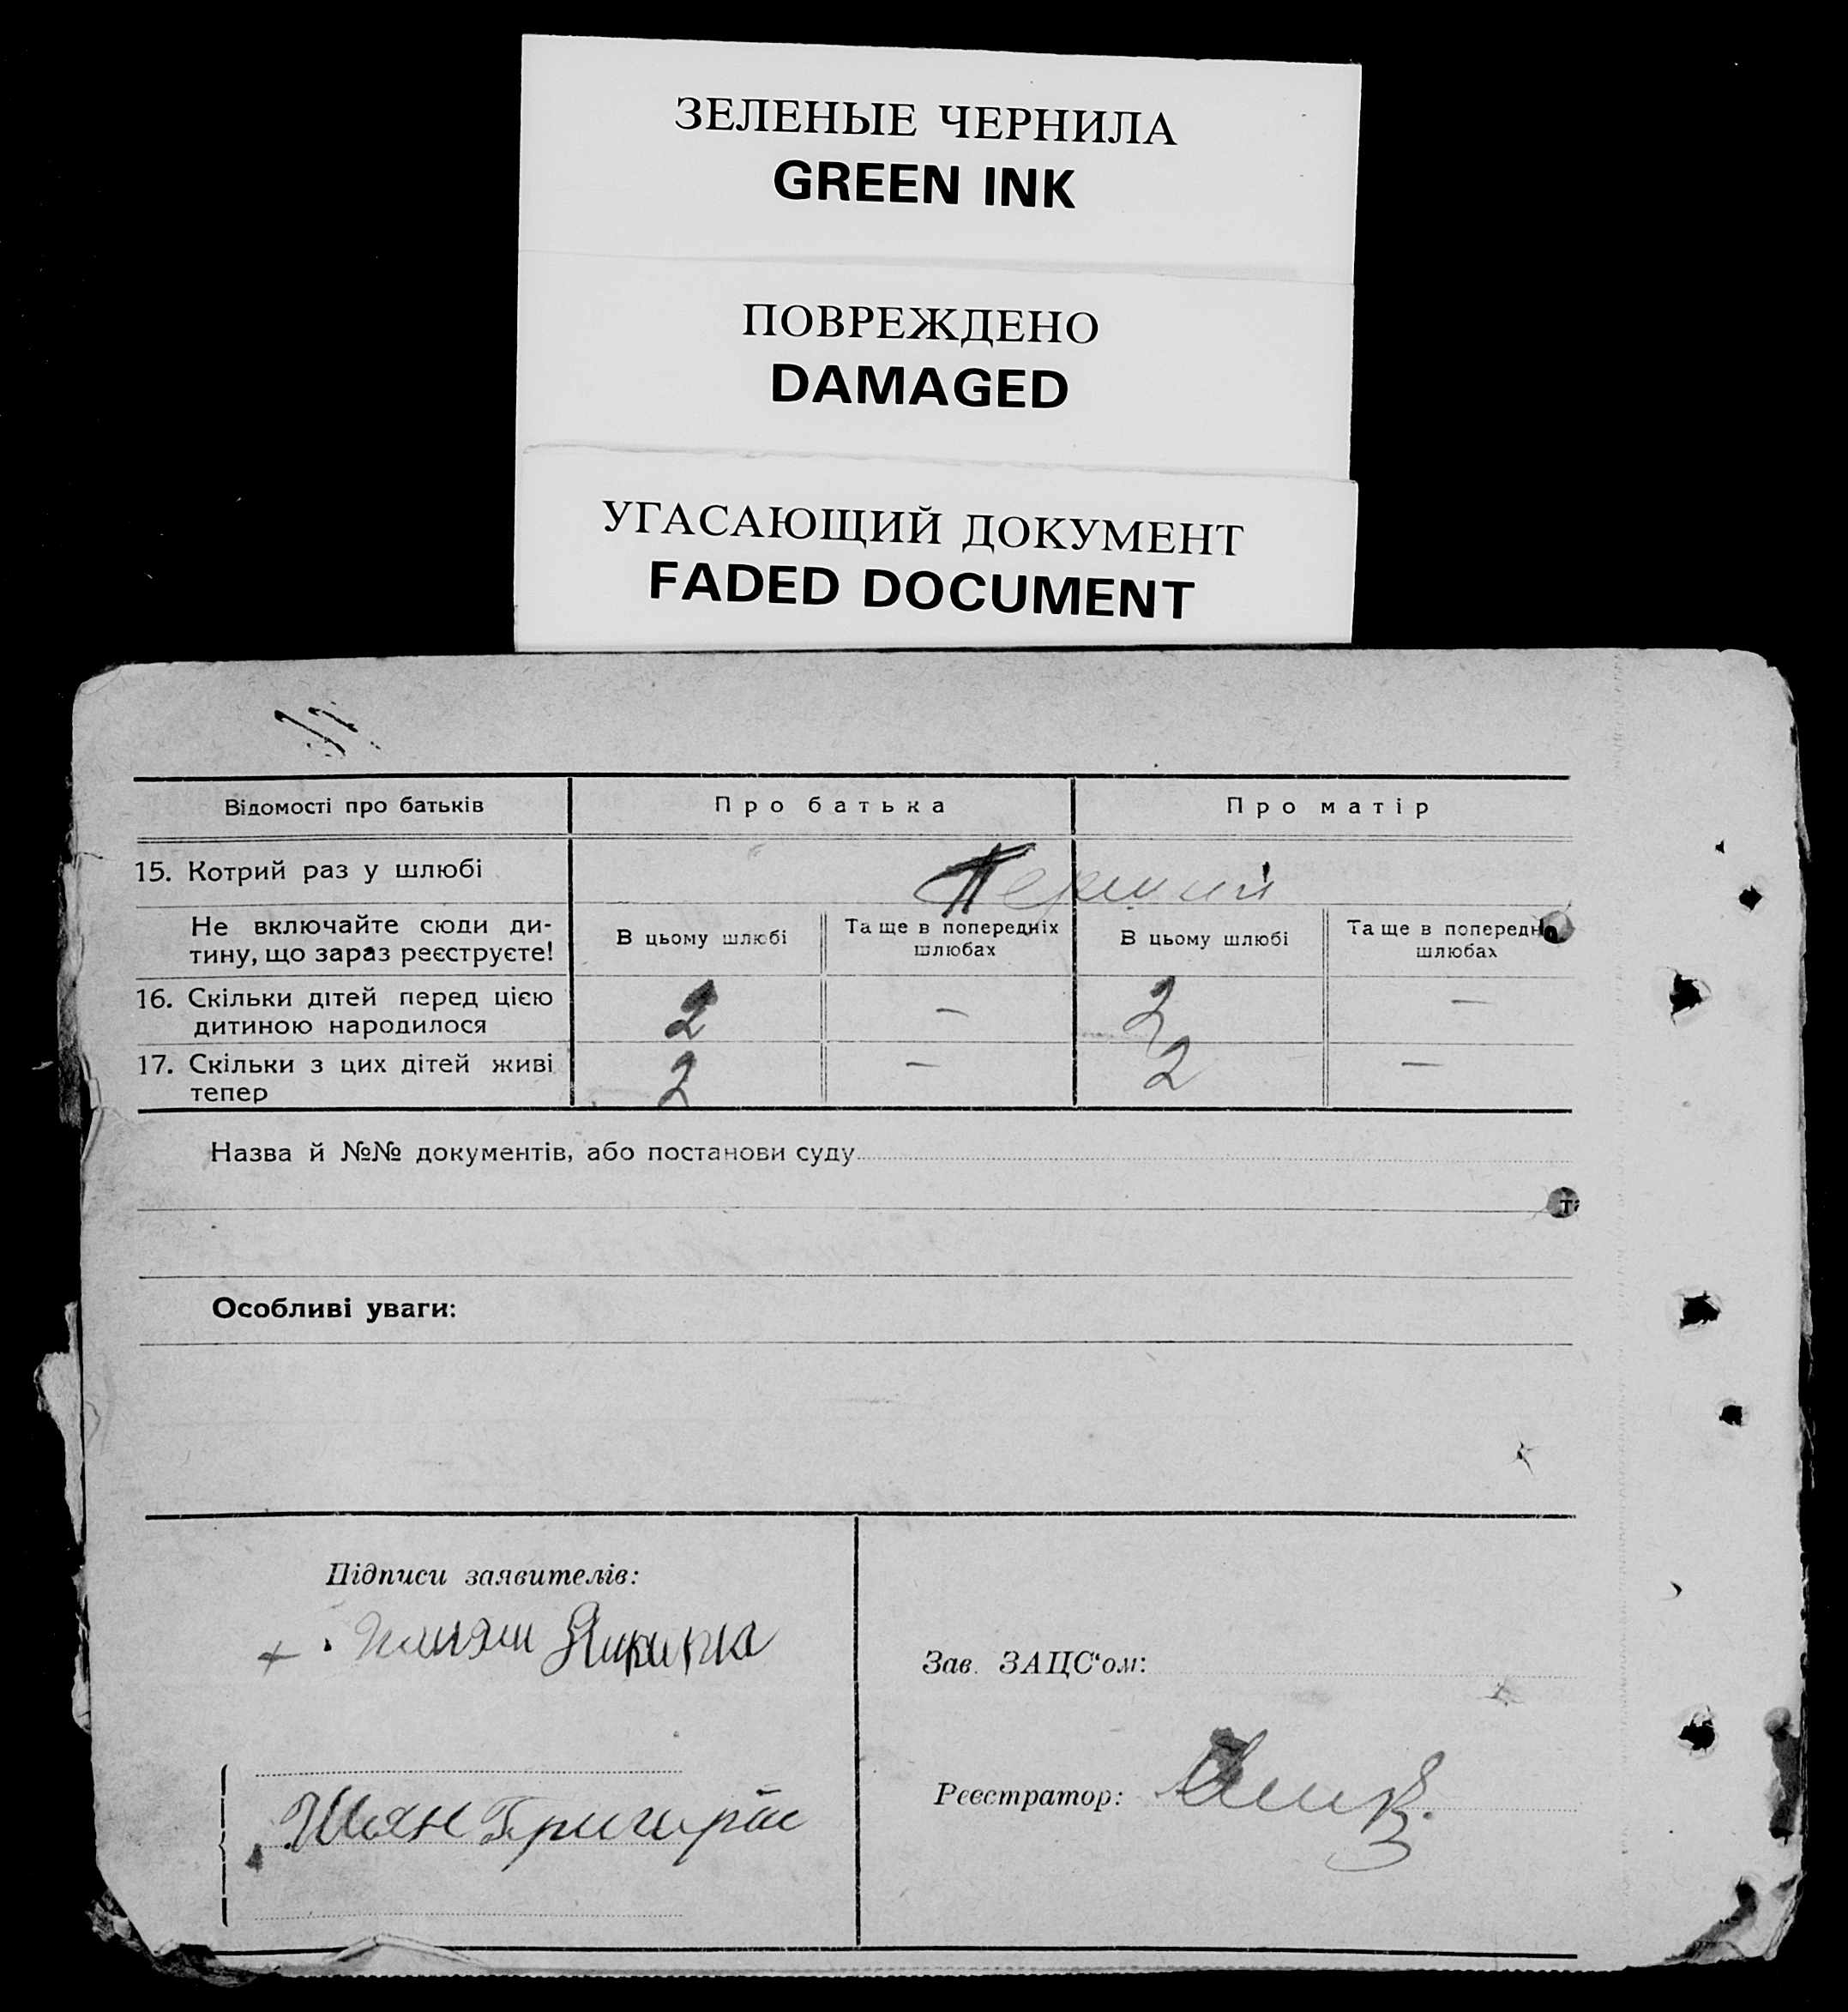 ЗЕЛЕНЫЕ ЧЕРНИЛА
GREEN INK
ПОВРЕЖДЕНО
DAMAGED
УГАСАЮЩИЙ ДОКУМЕНТ
FADED DOCUMENT
Відомості про батьків Про батька Про матір
15. Котрий раз у шлюбі Перший
Не включайте сюди ди-
тину, що зараз реєструєте!
В цьому шлюбі Та ще в попередніх шлюбах В цьому шлюбі Та ще в попередн шлюбах
16. Скільки дітей перед цією
дитиною народилося 2 — 2 —
17. Скільки з цих дітей живі
тепер 2 — 2 —
Назва й №№ документів, або постанови суду
Особливі уваги:
Підписи заявителів:
Зав. ЗАЦС‘ом:
Реєстратор: